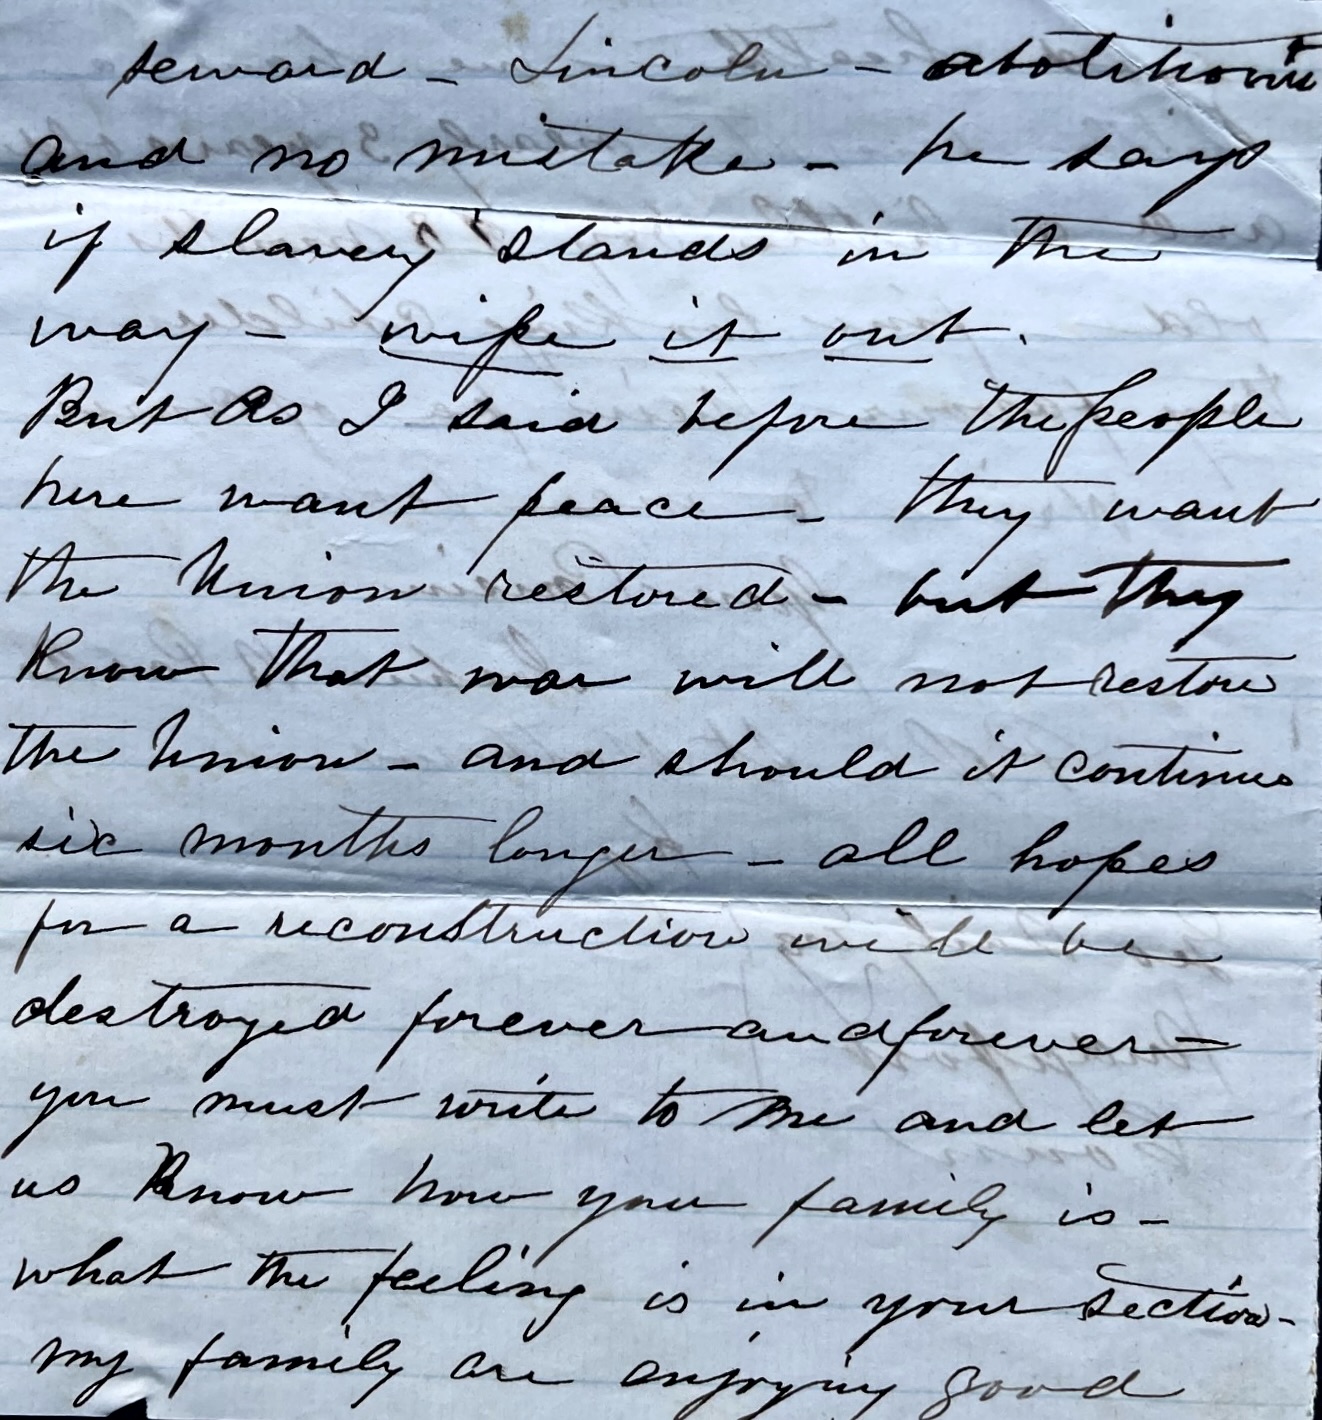 seward - Lincoln - abolitionist
and no mistake - he says
if slavery stands in the
way - wipe it out.
But As I said before the people
here want peace - they want
the Union restored - but they
Know that war will not restore
the Union - and should it continue
six months longer - all hopes
for a reconstruction will be
destroyed forever and forever -
you must write to me and let
us Know how your family is -
what the feeling is in your section -
my family are enjoying good